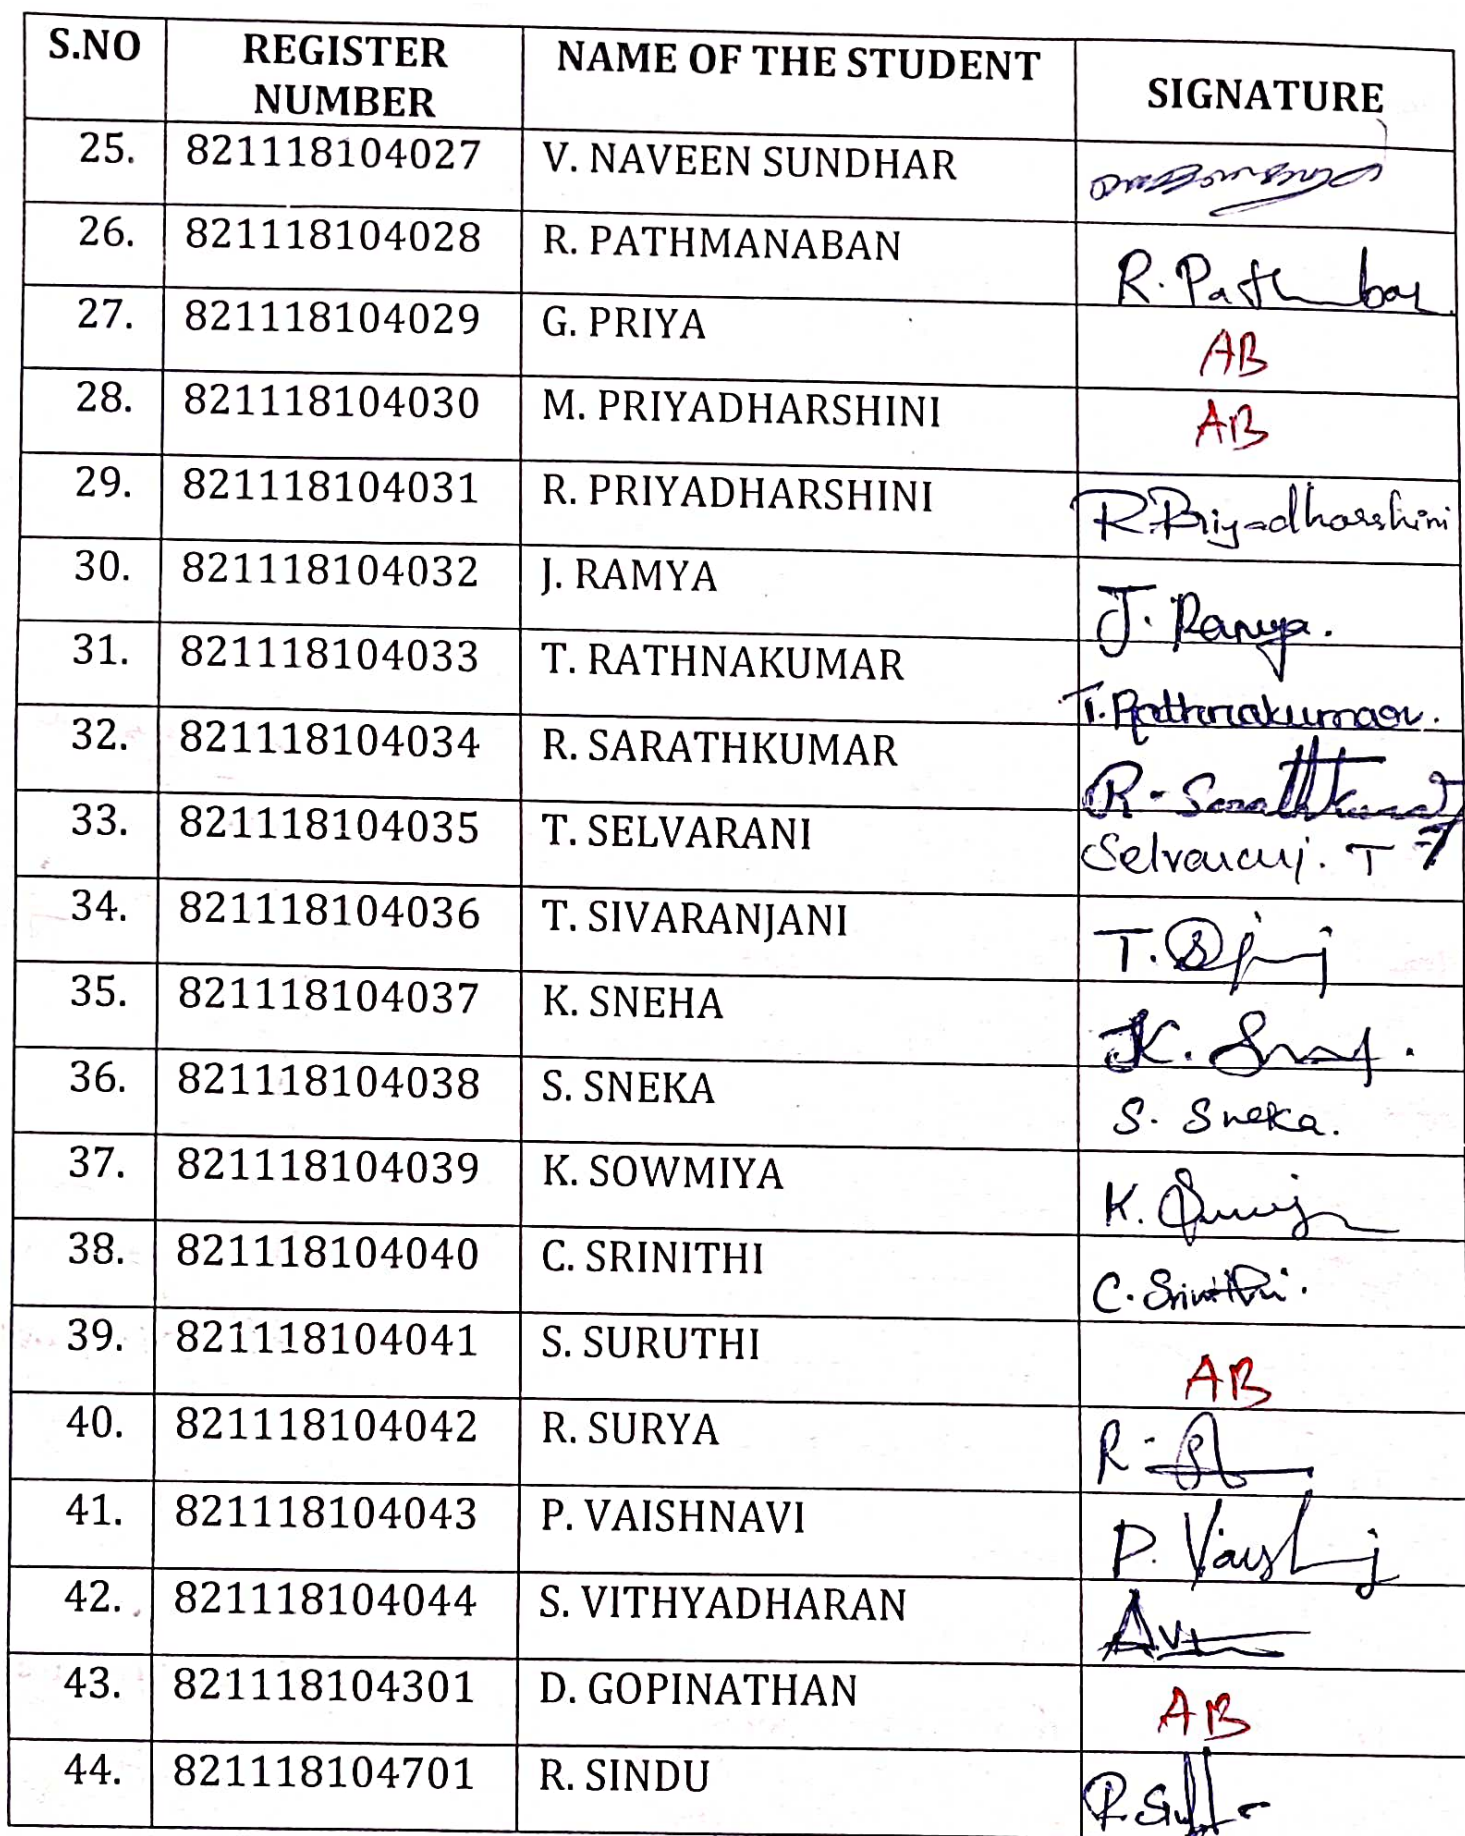 S.NO REGISTER NUMBER NAME OF THE STUDENT SIGNATURE
25. 821118104027 V. NAVEEN SUNDHAR
26. 821118104028 R. PATHMANABAN R. Path
27. 821118104029 G. PRIYA AB
28. 821118104030 M. PRIYADHARSHINI AB
29. 821118104031 R. PRIYADHARSHINI R. Priyadharshini
30. 821118104032 J. RAMYA J. Ramya.
31. 821118104033 T. RATHNAKUMAR T. Rathnakumar.
32. 821118104034 R. SARATHKUMAR R. Sarathkumar
33. 821118104035 T. SELVARANI Selvarani. T
34. 821118104036 T. SIVARANJANI T.
35. 821118104037 K. SNEHA K.
36. 821118104038 S. SNEKA S. Sneka.
37. 821118104039 K. SOWMIYA K.
38. 821118104040 C. SRINITHI C. Srinithi.
39. 821118104041 S. SURUTHI AB
40. 821118104042 R. SURYA R.
41. 821118104043 P. VAISHNAVI P.
42. 821118104044 S. VITHYADHARAN
43. 821118104301 D. GOPINATHAN AB
44. 821118104701 R. SINDU R.